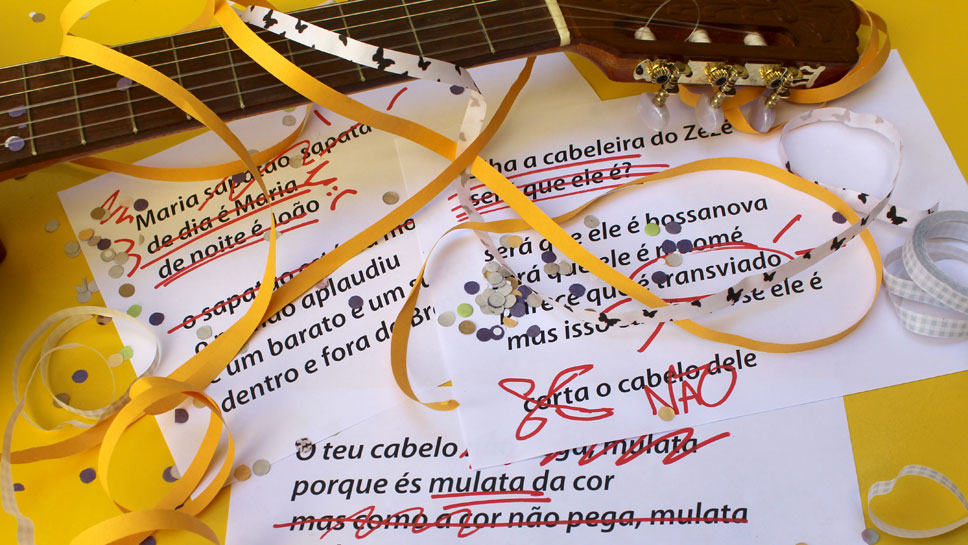 Maria sapatão, sapata
de dia é Maria
de noite é João
o sapatão
aplaudiu
é um barato é um
dentro e fora do
a cabeleira do Zezé
será que ele é?
será que ele é bossanova
será que ele é maomé
parece que é transviado
mas isso se ele é
corta o cabelo dele
NÃO
O teu cabelo não nega, mulata
porque és mulata da cor
mas como a cor não pega, mulata